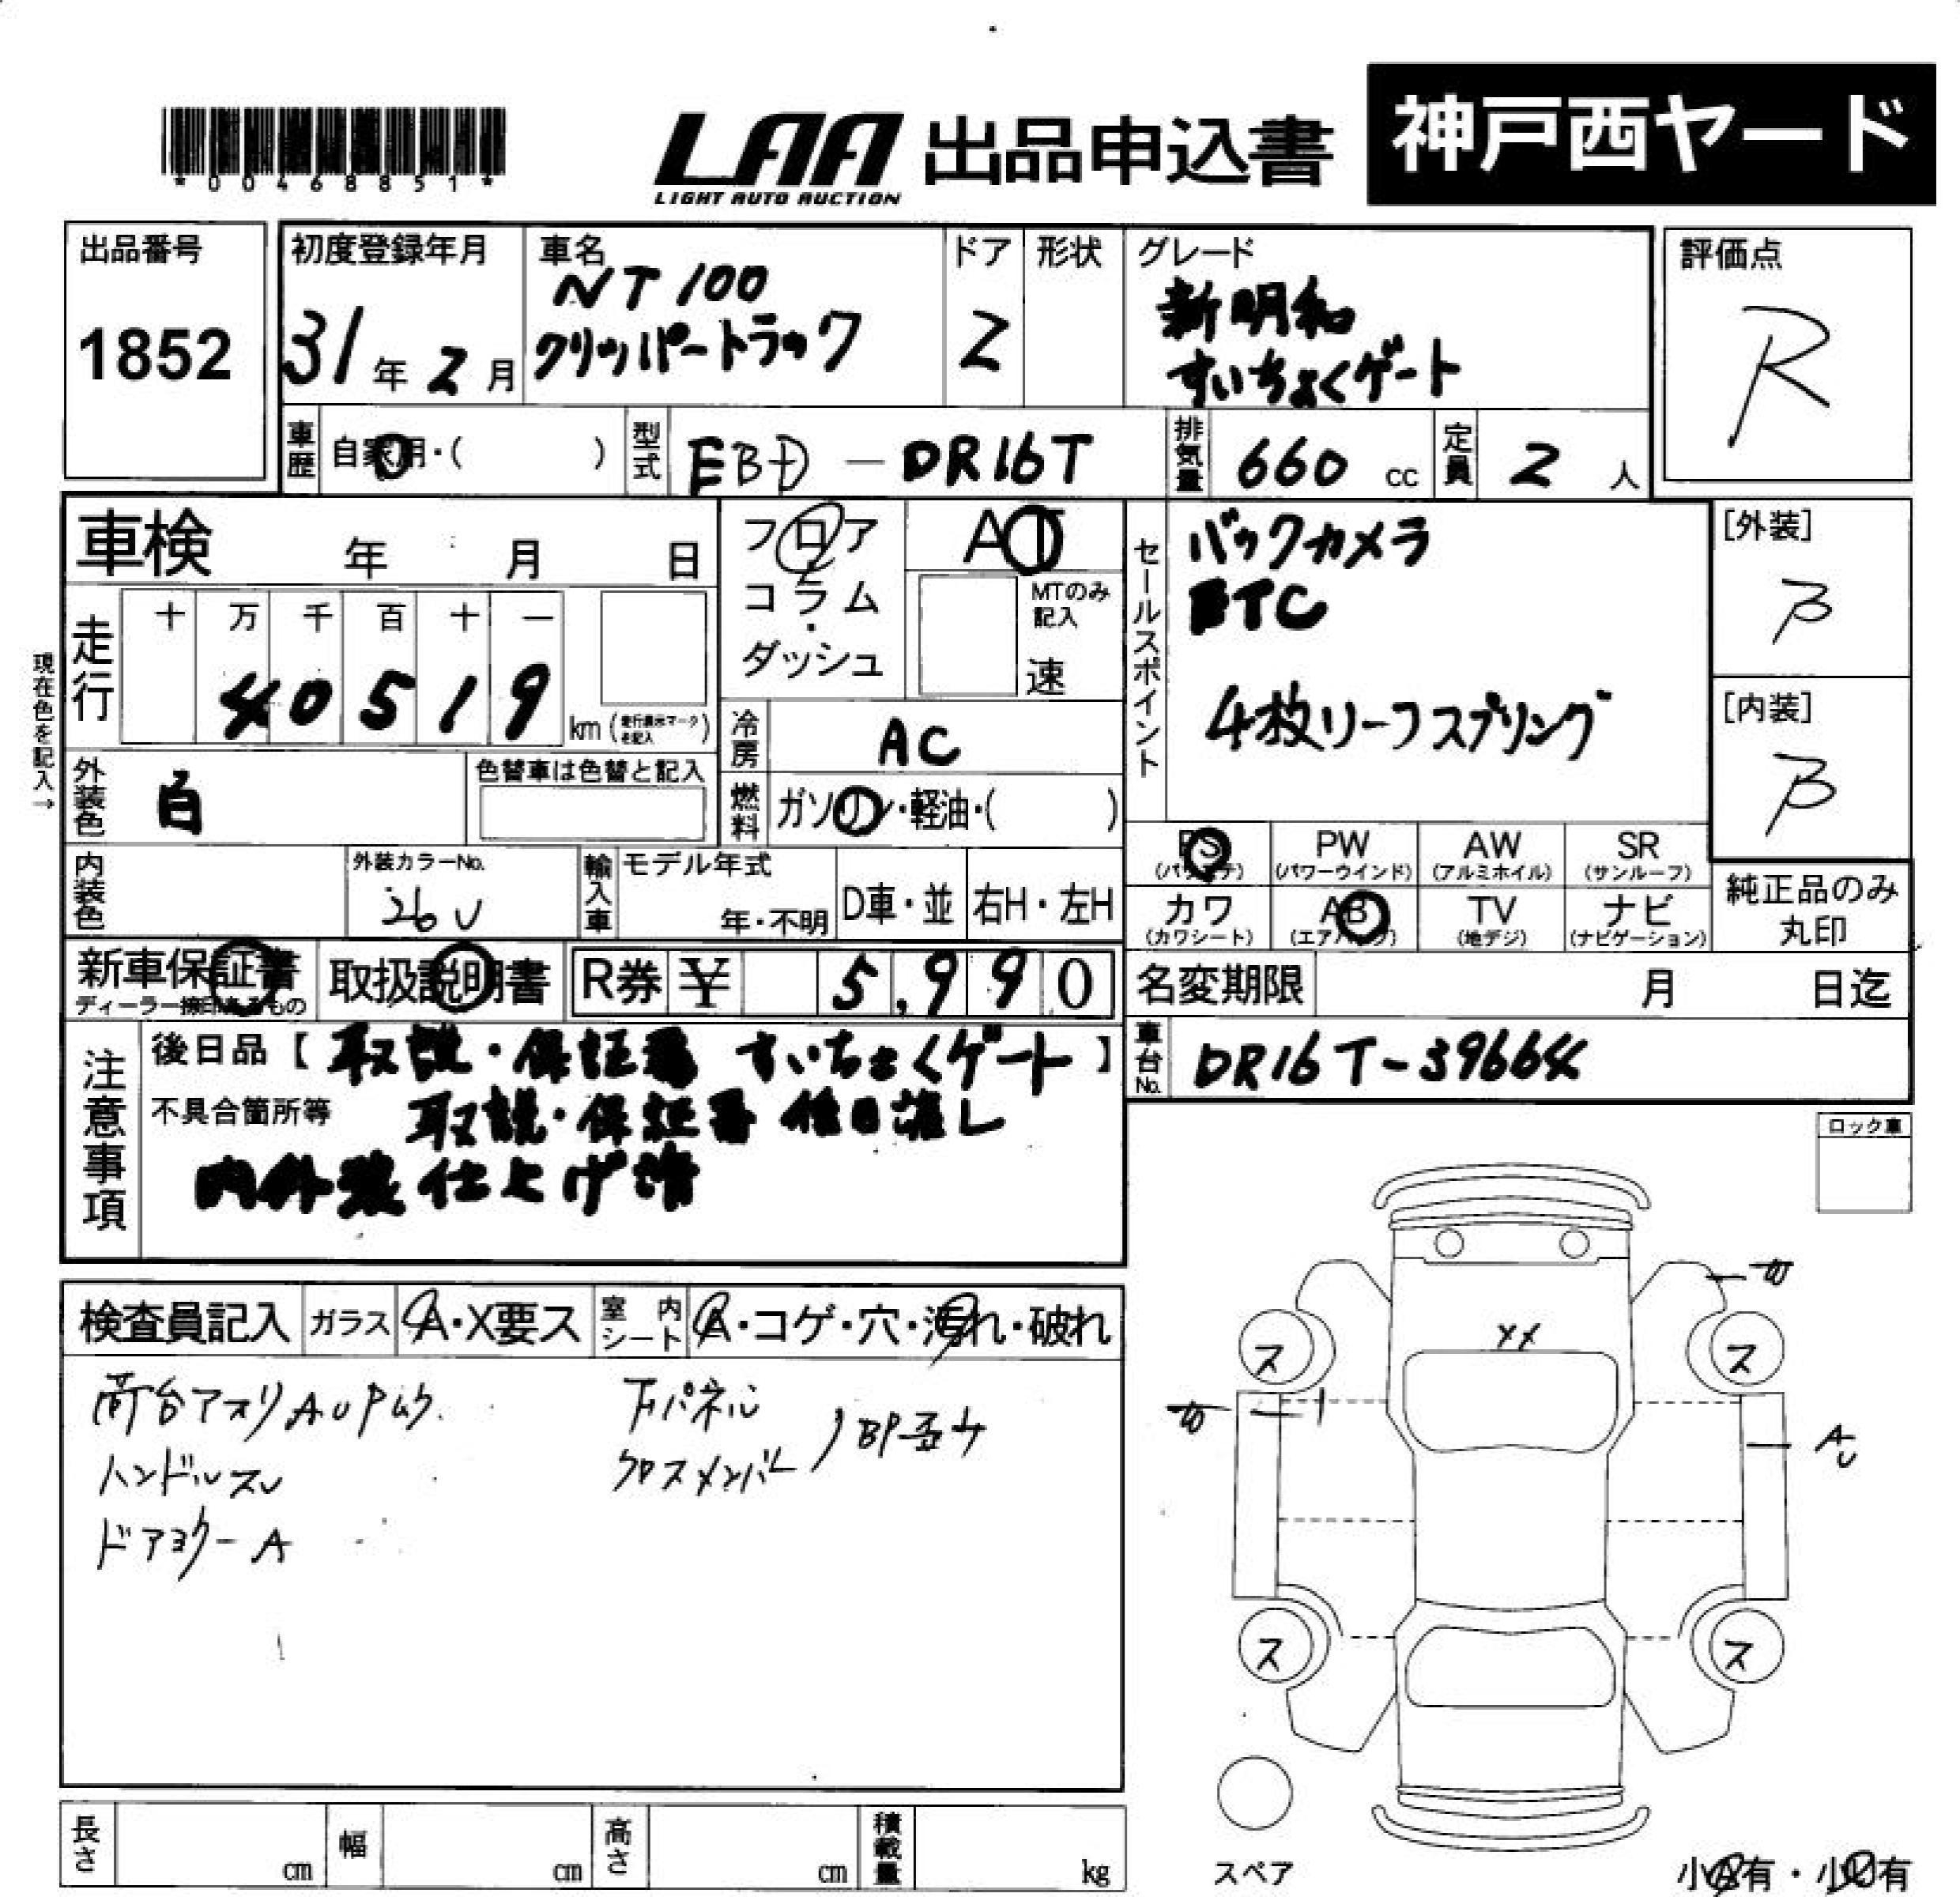 *00468851*
LAA 出品申込書 神戸西ヤード
LIGHT AUTO AUCTION
出品番号
1852
初度登録年月
31年2月
車名
NT100
クリッパートラック
ドア
2
形状
グレード
新明和
すいちょくゲート
評価点
R
車歴 自家用・( )
型式 EBD-DR16T
排気量 660 cc
定員 2 人
車検 年 月 日
フロア
コラム
ダッシュ
AT
MTのみ記入
速
セールスポイント
バックカメラ
ETC
4枚リーフスプリング
[外装]
B
[内装]
B
現在色を記入→
走行
十 万 千 百 十 一
4 0 5 1 9
km (走行表示マークを記入)
冷房 AC
燃料 ガソリン・軽油・( )
外装色 白
色替車は色替と記入
内装色
外装カラーNo.
26U
輸入車
モデル年式
年・不明
D車・並
右H・左H
PS (パワステ)
PW (パワーウインド)
AW (アルミホイル)
SR (サンルーフ)
カワ (カワシート)
AB (エアバック)
TV (地デジ)
ナビ (ナビゲーション)
純正品のみ
丸印
新車保証書
ディーラー捺印あるもの
取扱説明書
R券 ¥ 5,990
名変期限 月 日迄
車台No. DR16T-39664
注意事項
後日品【取説・保証書 すいちょくゲート】
不具合箇所等 取説・保証書 後日渡し
内外装仕上げ済
ロック車
検査員記入
ガラス A・X要ス
室内シート A・コゲ・穴・汚れ・破れ
荷台アオリAUPムラ
ハンドルスレ
ドアヨクーA
下パネル
クロスメンバー
BP歪サ
XX
ス
ス
A
U
ス
ス
スペア
小A有・小U有
長さ cm
幅 cm
高さ cm
積載量 kg